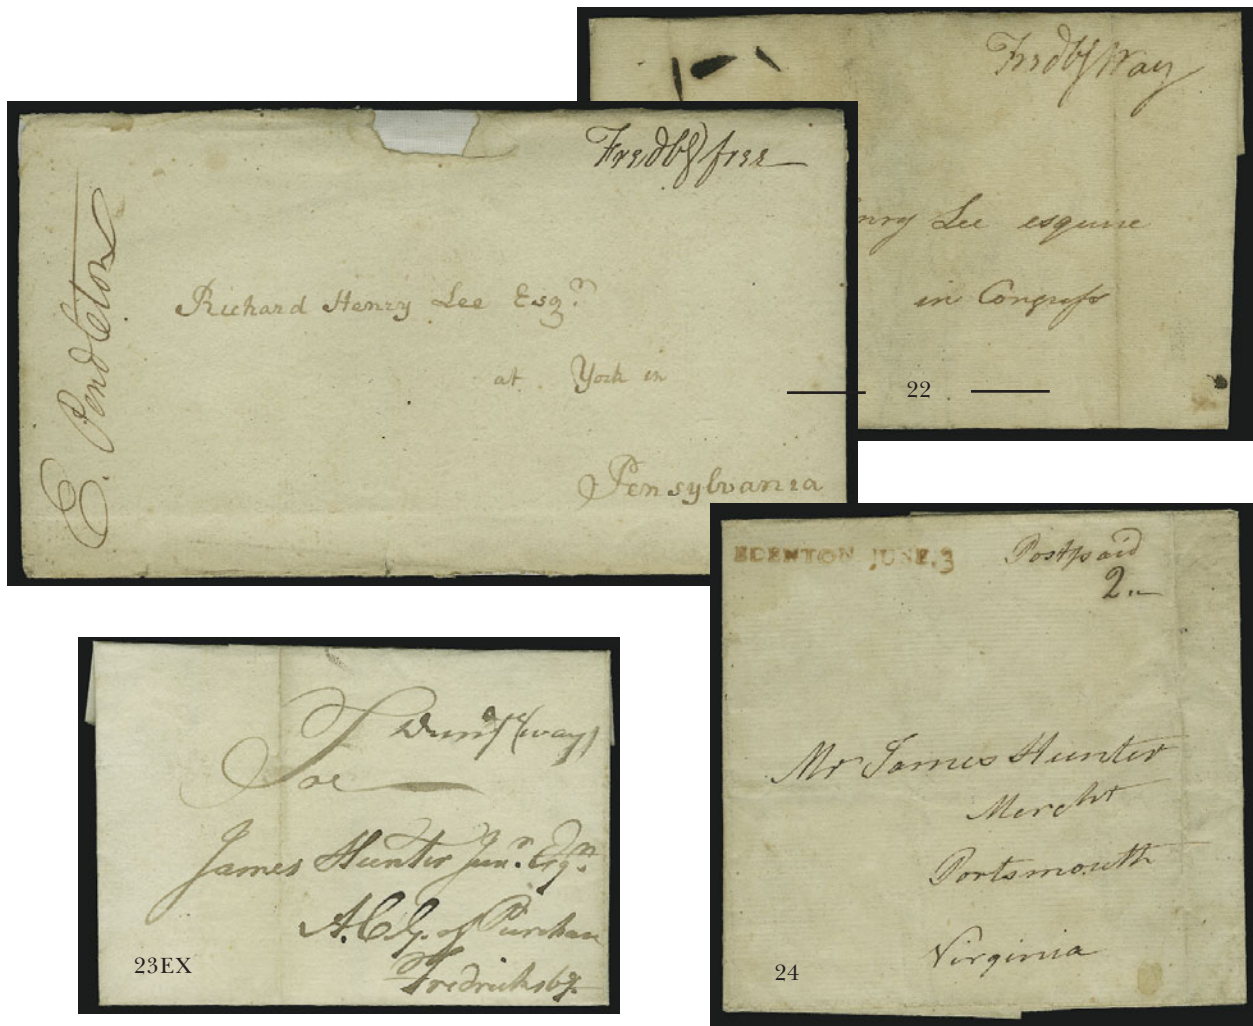 Fredbg Way
nry Lee esquire
in Congress
22
Fredbg free
E. Pendleton
Richard Henry Lee Esqr.
at York in
Pensylvania
EDENTON JUNE.3
Postpaid
2..
Mr James Hunter
Mercht
Portsmouth
Virginia
24
(way)
To
James Hunter Junr. Esqr.
of Purchase
Fredricksbg.
23EX